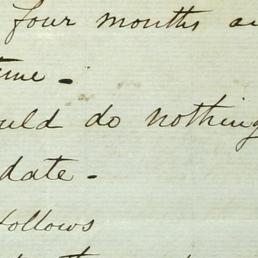 four months
time.
do nothing
date.
follows